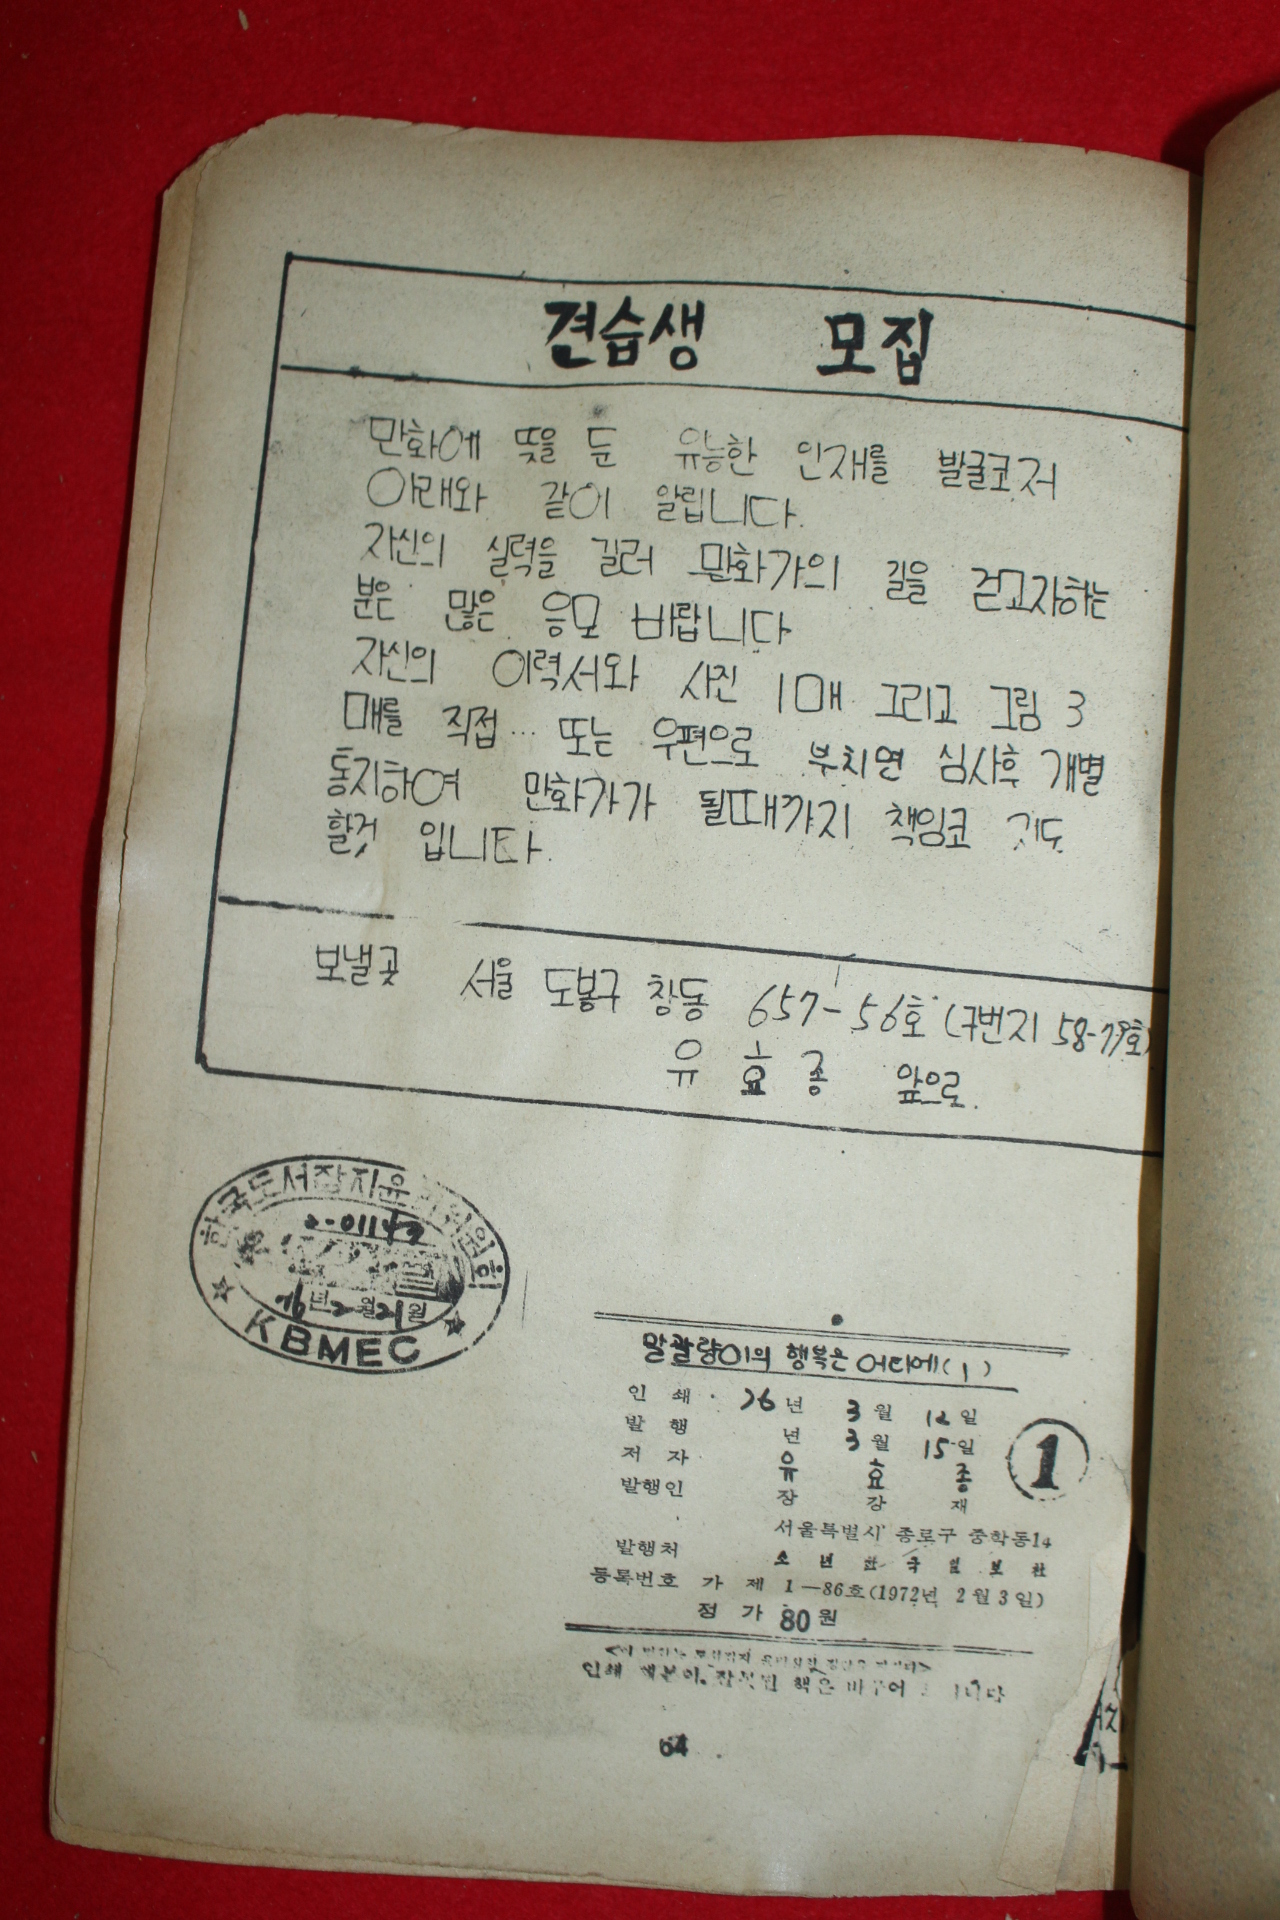 견습생 모집
만화에 뜻을 둔 유능한 인재를 발굴코저
아래와 같이 알립니다.
자신의 실력을 길러 만화가의 길을 걷고자하는
분은 많은 응모 바랍니다
자신의 이력서와 사진 1매 그리고 그림 3
매를 직접… 또는 우편으로 부치면 심사후 개별
통지하여 만화가가 될때까지 책임코 지도
할것 입니다.
보낼곳 서울 도봉구 창동 657-56호 (구번지 58-79호)
유 효 종 앞으로.
한국도서잡지윤 위원회
2-01147
76년 2월 21일
KBMEC
말괄량이의 행복은 어디에(1)
인 쇄 76년 3월 12일
발 행 년 3월 15일
저 자 유 효 종
발행인 장 강 재
1
서울특별시 종로구 중학동14
발행처 소 년 한 국 일 보 社
등록번호 가 제 1—86호(1972년 2월 3일)
정 가 80원
인쇄 책은 바꾸어
64